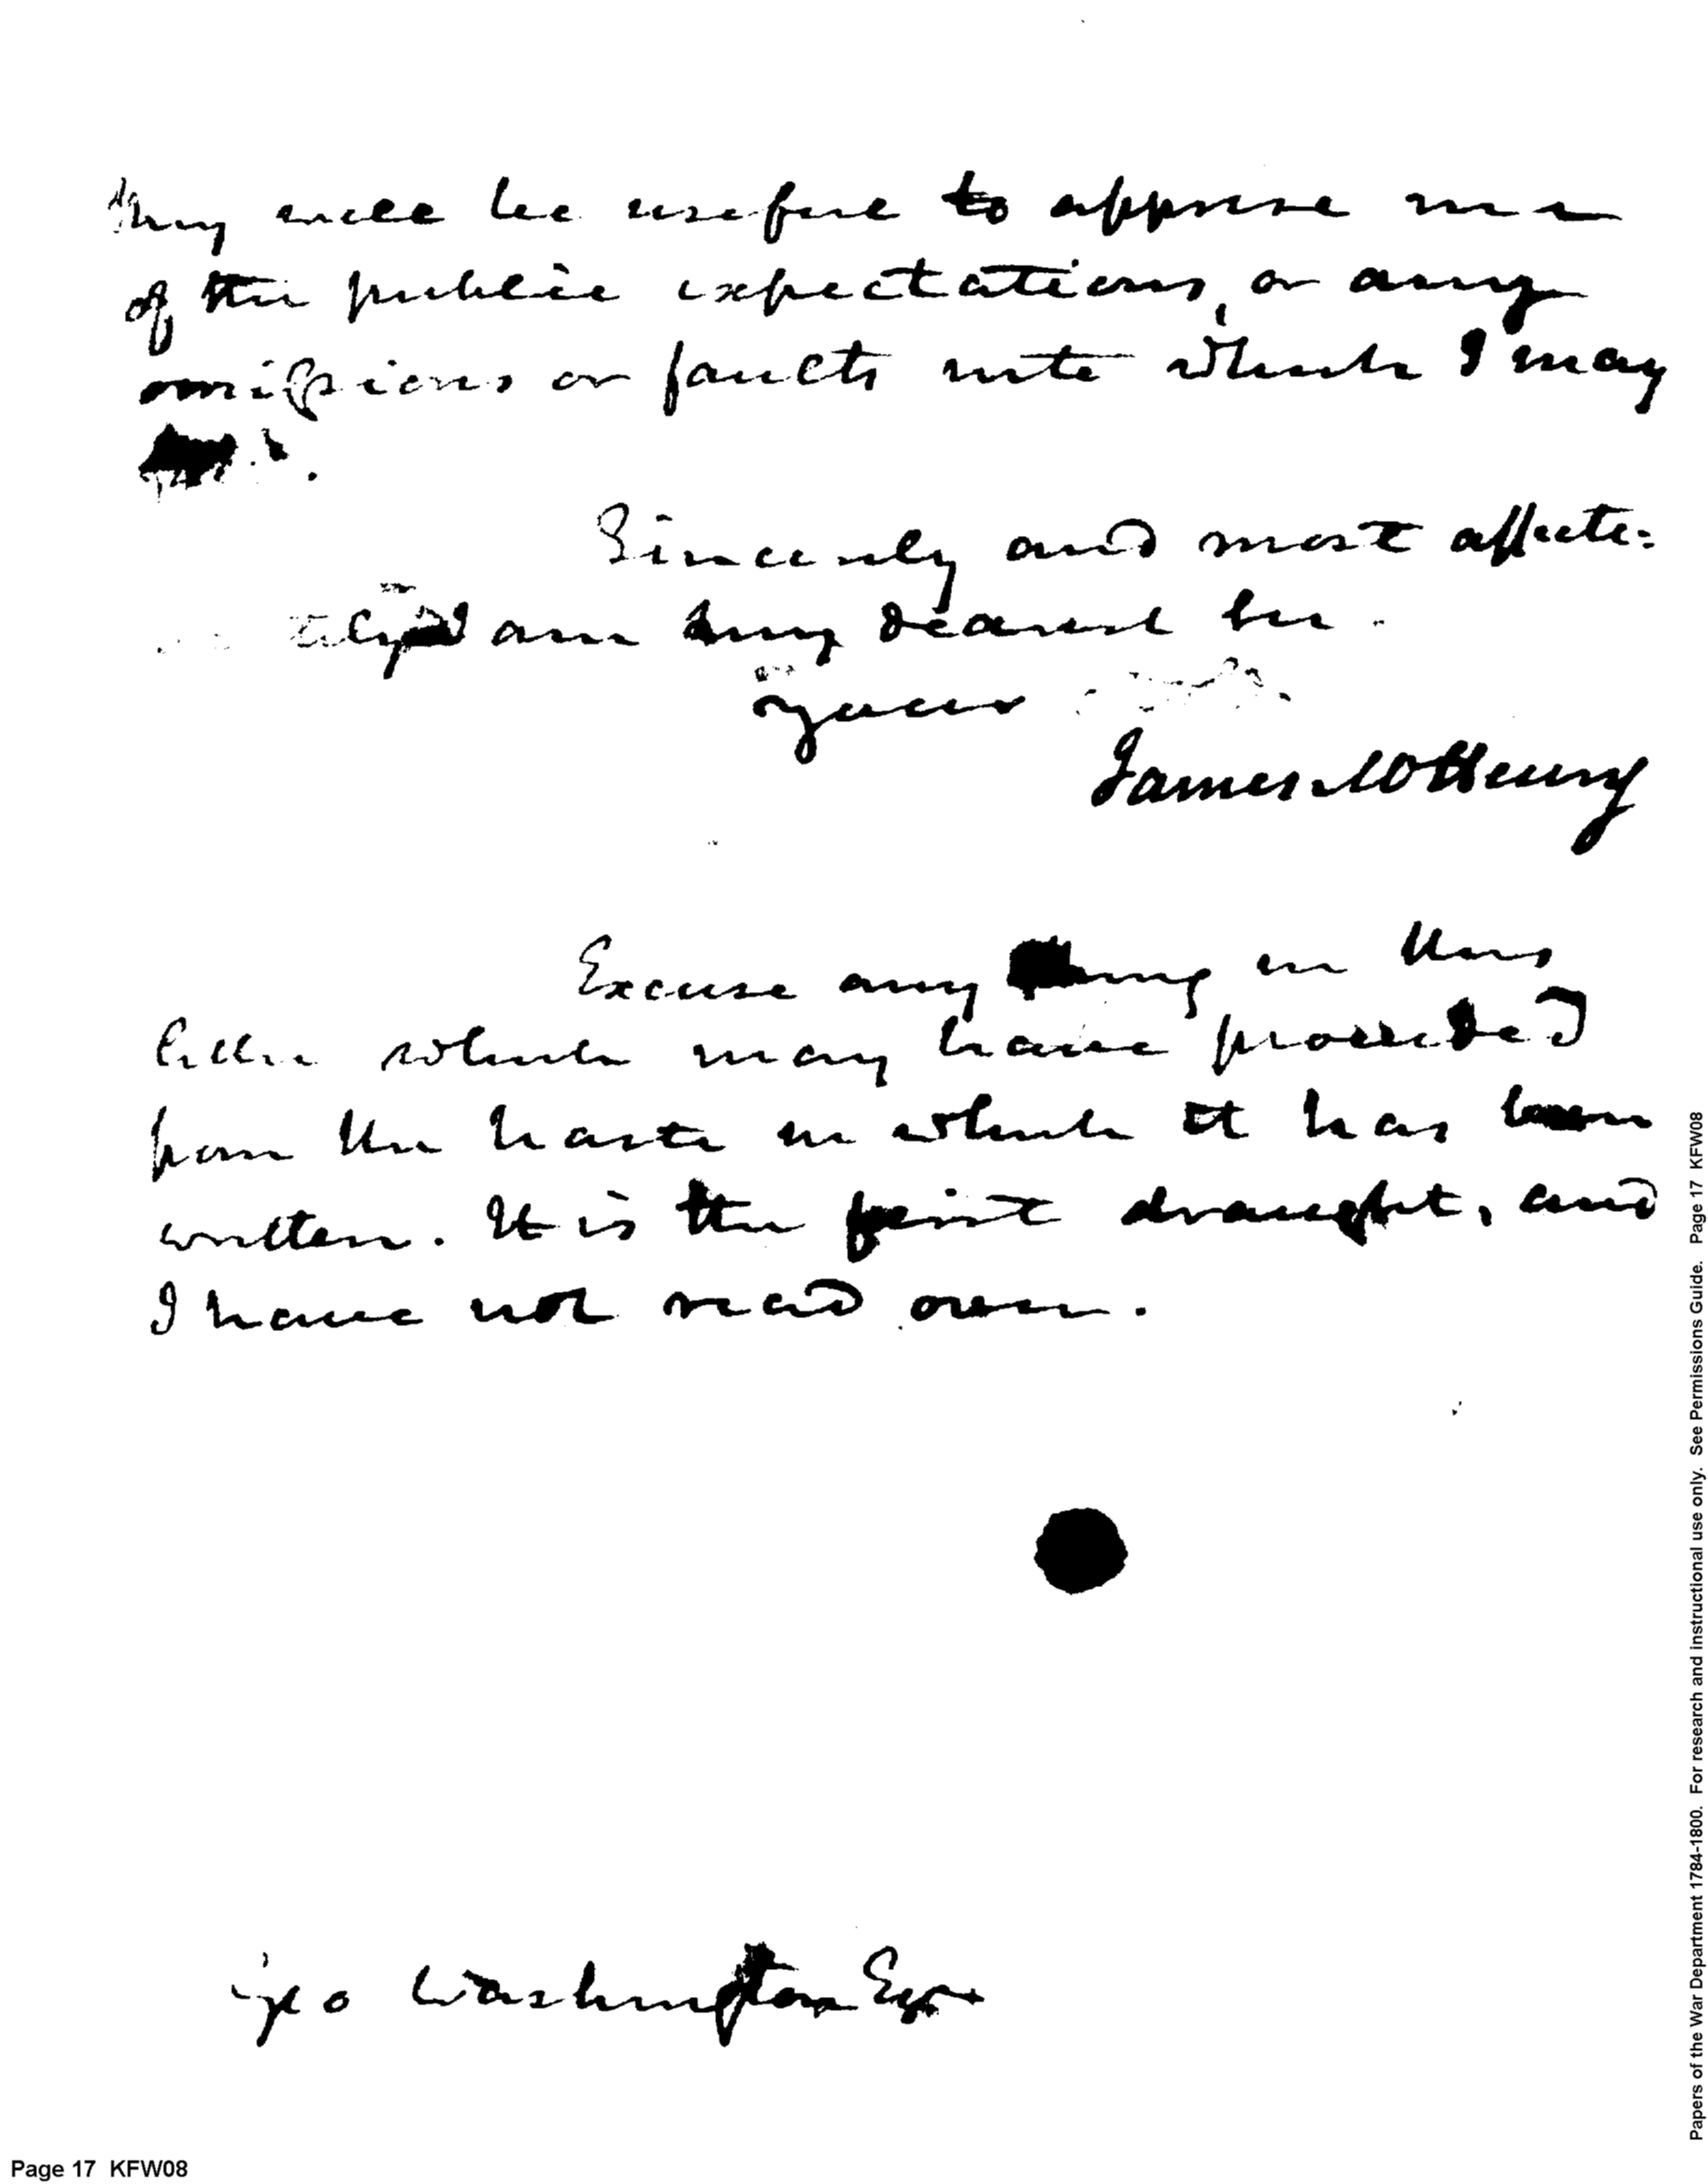 they will be useful to apprise me
of the public expectations, or any
omissions or faults into which I may
Sincerely and most affecte=
I am my dear Sir
yours
James McHenry
Excuse any thing in this
letter which may have proceeded
from the haste in which it has been
written. It is the first draught, and
I have not read over.
Geo Washington Esqr
Page 17 KFW08
Papers of the War Department 1784-1800. For research and instructional use only. See Permissions Guide. Page 17 KFW08